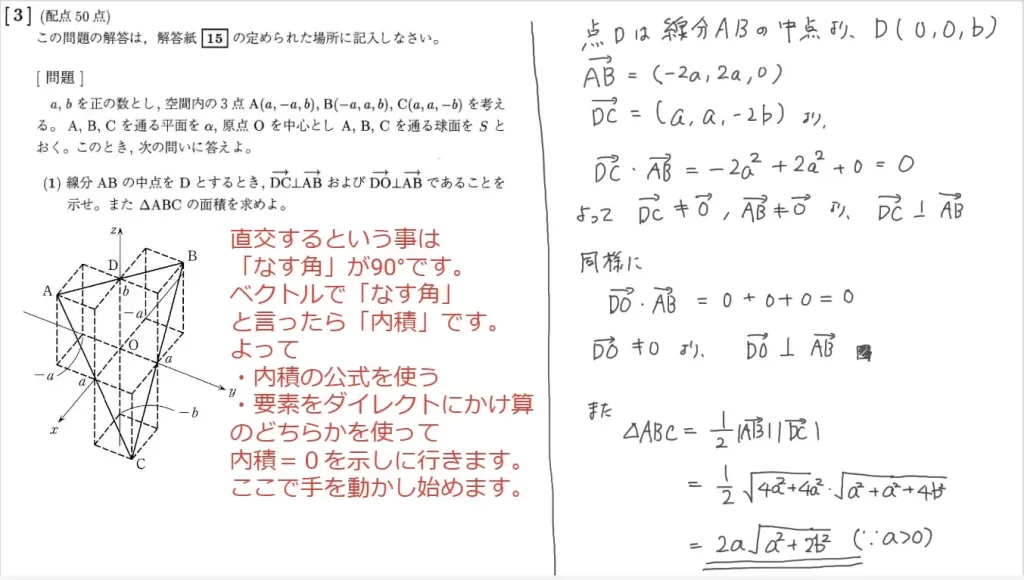 [3] (配点 50 点)
この問題の解答は, 解答紙 15 の定められた場所に記入しなさい。
[ 問題 ]
a, b を正の数とし, 空間内の 3 点 A(a, −a, b), B(−a, a, b), C(a, a, −b) を考え
る。 A, B, C を通る平面を α, 原点 O を中心とし A, B, C を通る球面を S と
おく。このとき, 次の問いに答えよ。
(1) 線分 AB の中点を D とするとき, DC⊥AB および DO⊥AB であることを
示せ。また ΔABC の面積を求めよ。
z
B
D
A
b
−a
O
−a
a
a
y
−b
x
C
直交するという事は
「なす角」が90°です。
ベクトルで「なす角」
と言ったら「内積」です。
よって
・内積の公式を使う
・要素をダイレクトにかけ算
のどちらかを使って
内積＝０を示しに行きます。
ここで手を動かし始めます。
点Dは線分ABの中点より、D(0,0,b)
AB = (-2a, 2a, 0)
DC = (a, a, -2b) より,
DC・AB = -2a² + 2a² + 0 = 0
よって DC ≠ 0, AB ≠ 0 より, DC ⊥ AB
同様に
DO・AB = 0 + 0 + 0 = 0
DO ≠ 0 より, DO ⊥ AB
また
△ABC = 1/2 |AB||DC|
= 1/2 √4a²+4a² · √a²+a²+4b²
= 2a√a²+2b² (∵a>0)